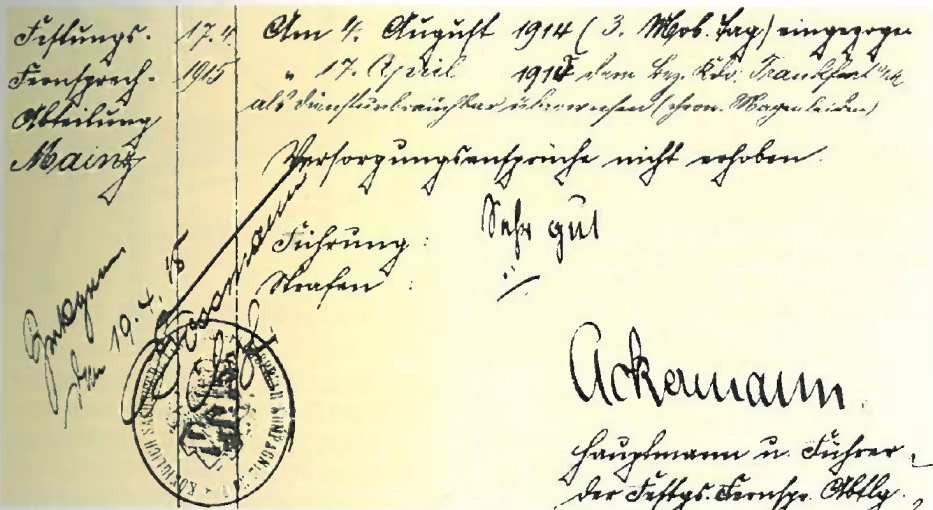 Festungs-
Fernsprech-
Abteilung
Mainz
17.4.
1915
Am 4. August 1914 (3. Mob. Tag) eingezogen
" 17. April 1915 dem Bez. Kdo. Frankfurt
als dienstunbrauchbar überwiesen (chron. Magenleiden)
Versorgungsansprüche nicht erhoben.
Führung : Sehr gut
Strafen : ./.
den 19.4.15
KÖNIGLICH
KOMPAGNIE
Ackermann.
Hauptmann u. Führer
der Festgs. Fernspr. Abtlg.